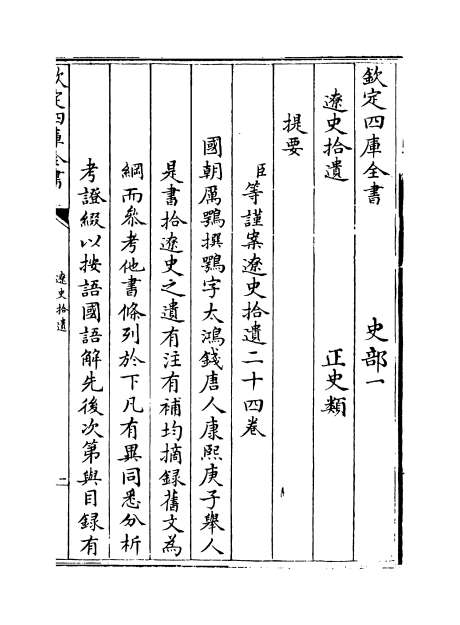 欽定四庫全書　史部一
遼史拾遺　正史類
提要
臣等謹案遼史拾遺二十四卷
國朝厲鶚撰鶚字太鴻錢唐人康熙庚子舉人
是書拾遼史之遺有注有補均摘録舊文為
綱而參考他書條列於下凡有異同悉分析
考證綴以按語國語解先後次第與目録有
欽定四庫全書
遼史拾遺
二